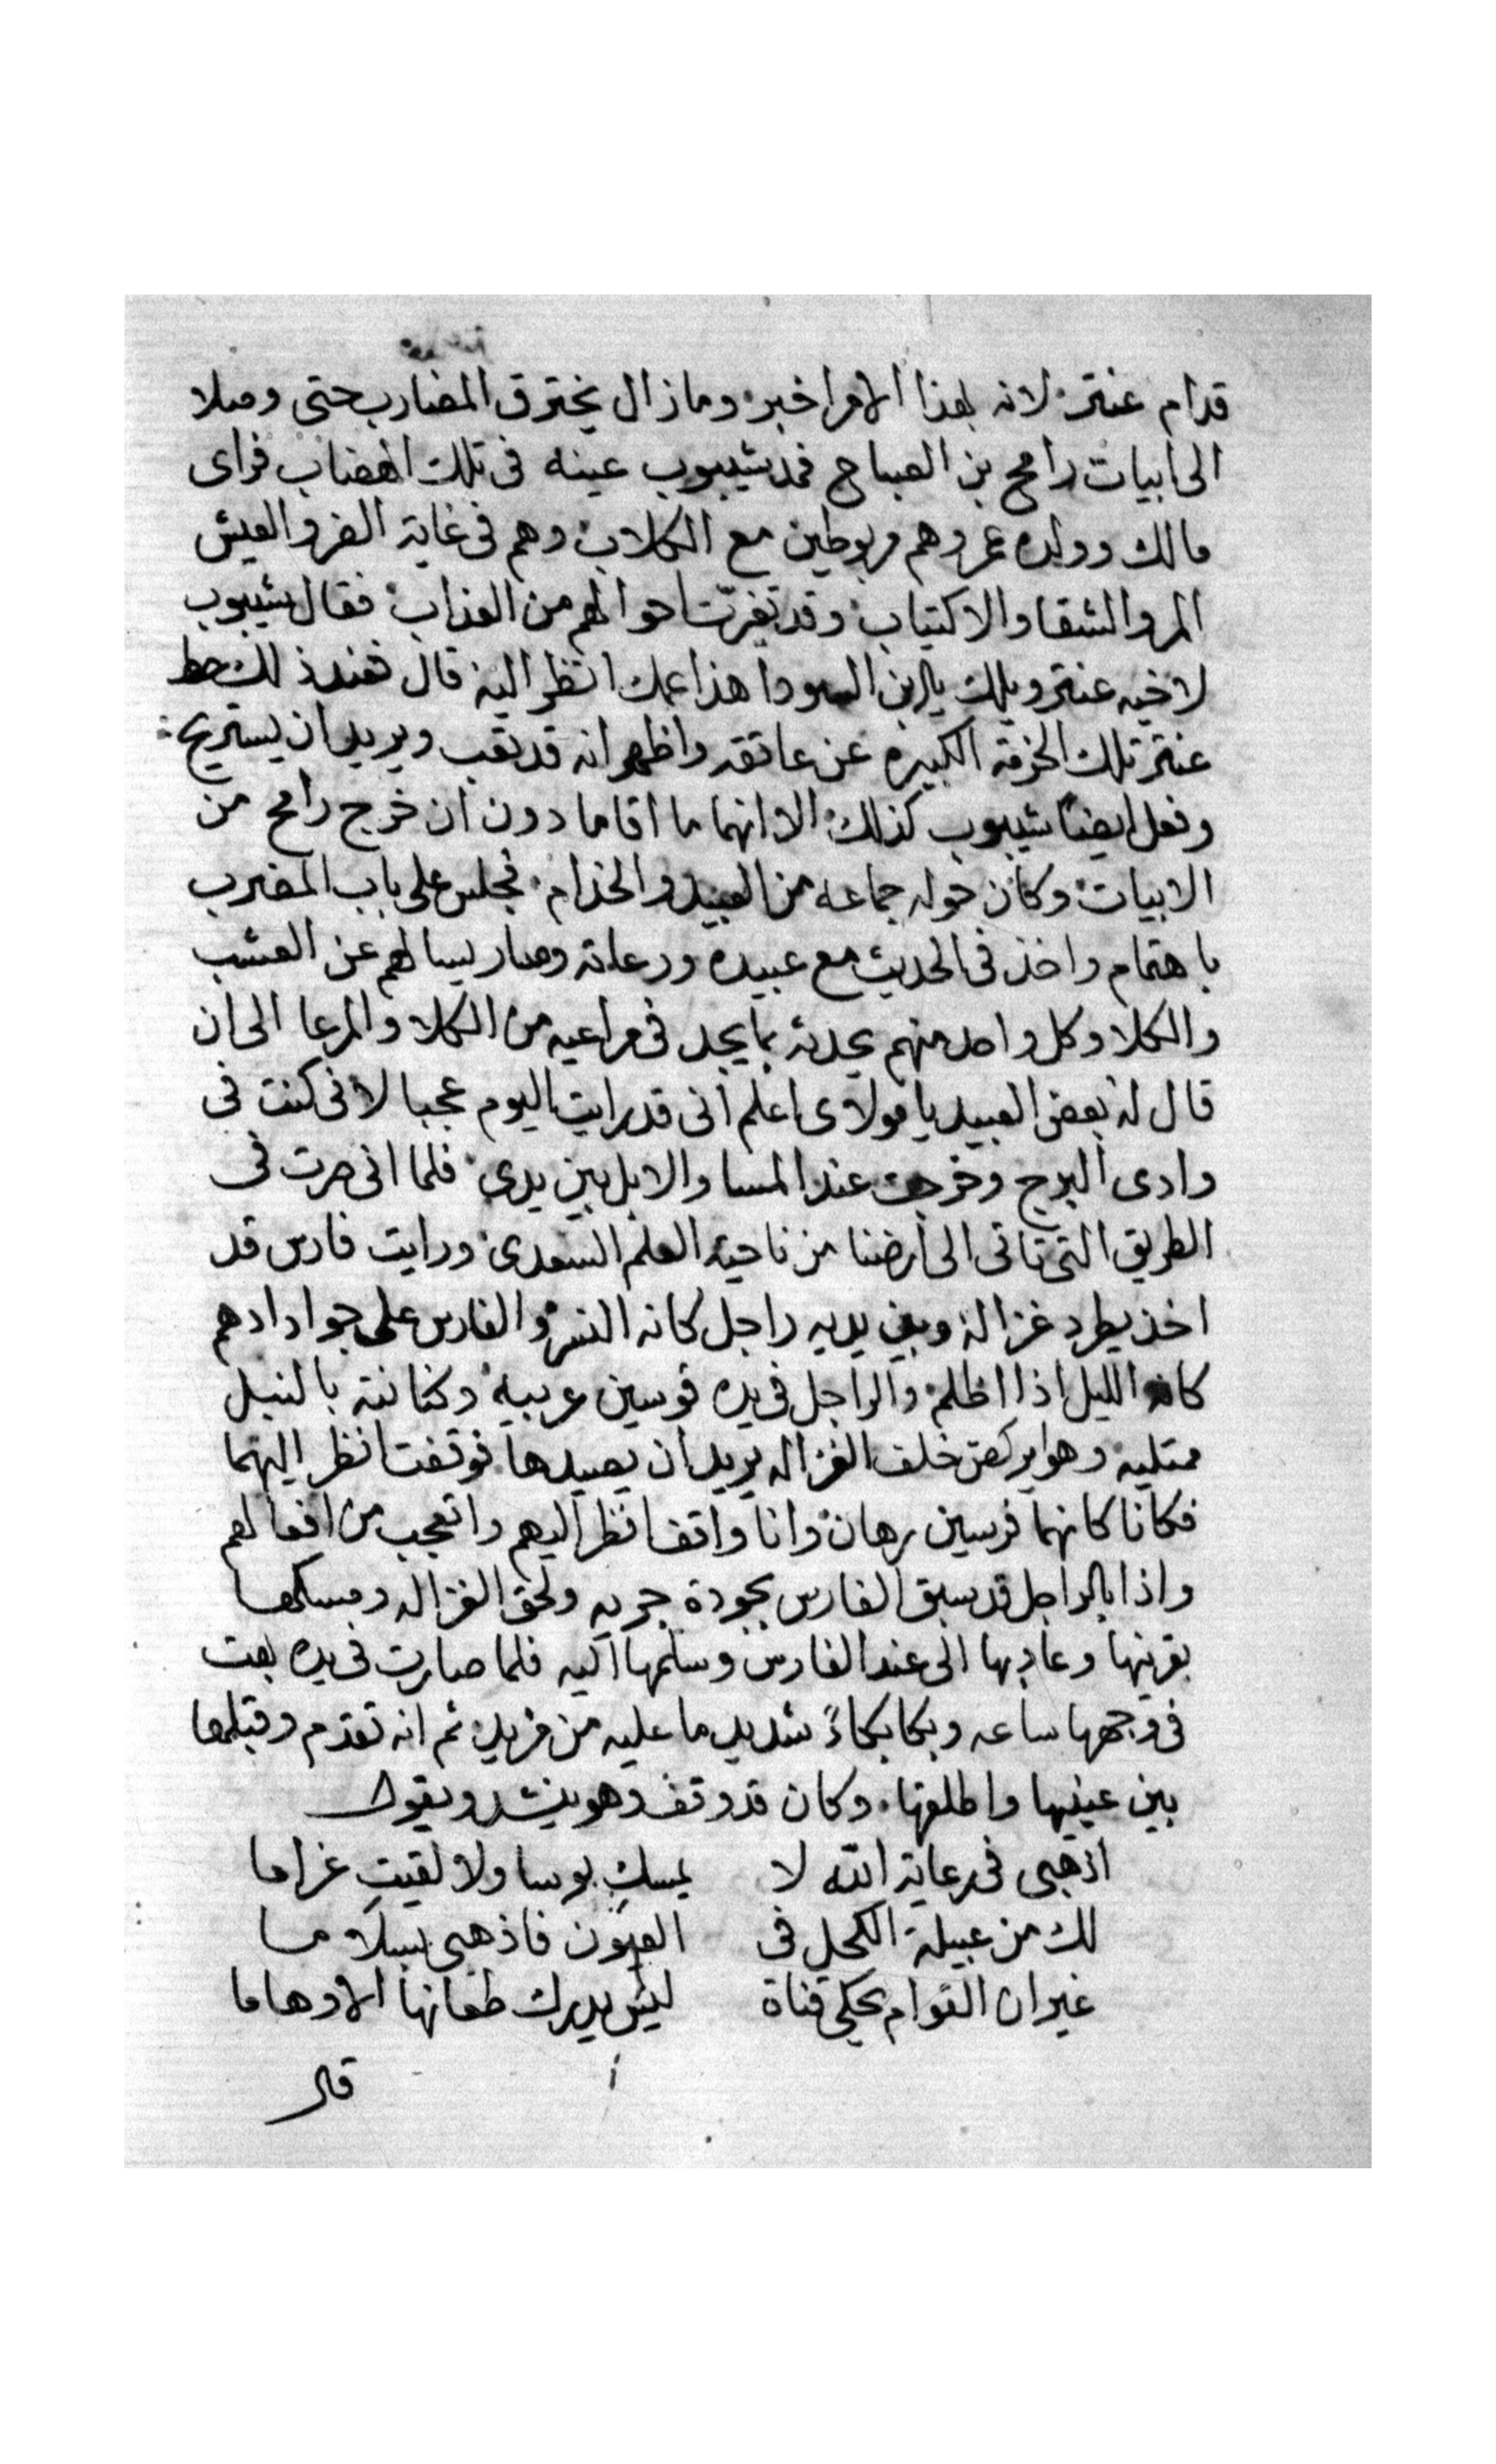 قدام عنتر لانه بهذا الامر اخبر وما زال يخترق المضارب حتى وصلا
الى ابيات رامح بن الصباح فمد شيبوب عينه فى تلك الهضاب فراى
مالك وولده عمرو هم مربوطين مع الكلاب وهم فى غاية الضر والعيش
المر والشقا والاكتياب وقد تغيرت احوالهم من العذاب فقال شيبوب
لاخيه عنتر ويلك يابن السودا هذا عمك انظر اليه قال فعند ذلك حط
عنتر تلك الحزمة الكبيره عن عاتقه واظهر انه قد تعب ويريد ان يستريح
وفعل ايضاً شيبوب كذلك الا انهما ما اقاما دون ان خرج رامح من
الابيات وكان حوله جماعه من العبيد والخدام فجلس على باب المضرب
باهتمام واخذ فى الحديث مع عبيده ورعاته وصار يسالهم عن العشب
والكلا وكل واحد منهم يحدثه بما يجد فى مراعيه من الكلا والمرعا الى ان
قال له بعض العبيد يا مولاى اعلم انى قد رايت اليوم عجبا لانى كنت فى
وادى البرج وخرجت عند المسا والابل بين يدى فلما انى صرت فى
الطريق التى تاتى الى ارضنا من ناحية العلم السعدى ورايت فارس قد
اخذ يطرد غزالة وبين يديه راجل كانه النسر والفارس على جواد ادهم
كانه الليل اذا اظلم والراجل فى يده قوسين عربيه وكنانته بالنبل
ممتليه وهو يركض خلف الغزاله يريد ان يصيدها فوقفت انظر اليهما
فكانا كانهما فرسين رهان وانا واقف انظر اليهم واتعجب من افعالهم
واذا بالراجل قد سبق الفارس بجودة جريه ولحق الغزاله ومسكها
بقرينها وعاد بها الى عند الفارس وسلمها اليه فلما صارت فى يده بهت
فى وجهها ساعه وبكا بكاءً شديد ما عليه من مزيد ثم انه تقدم وقبلها
بين عينيها واطلقها وكان قد وقف وهو ينشد ويقول
اذهبى فى رعاية الله لا يمسك بوسا ولا لقيت غراما
لك من عبيلة الكحل فى العيون فاذهبى بسلاما
غير ان القوام يحكى قناة ليس يدرك طعانها الاوهاما
قال